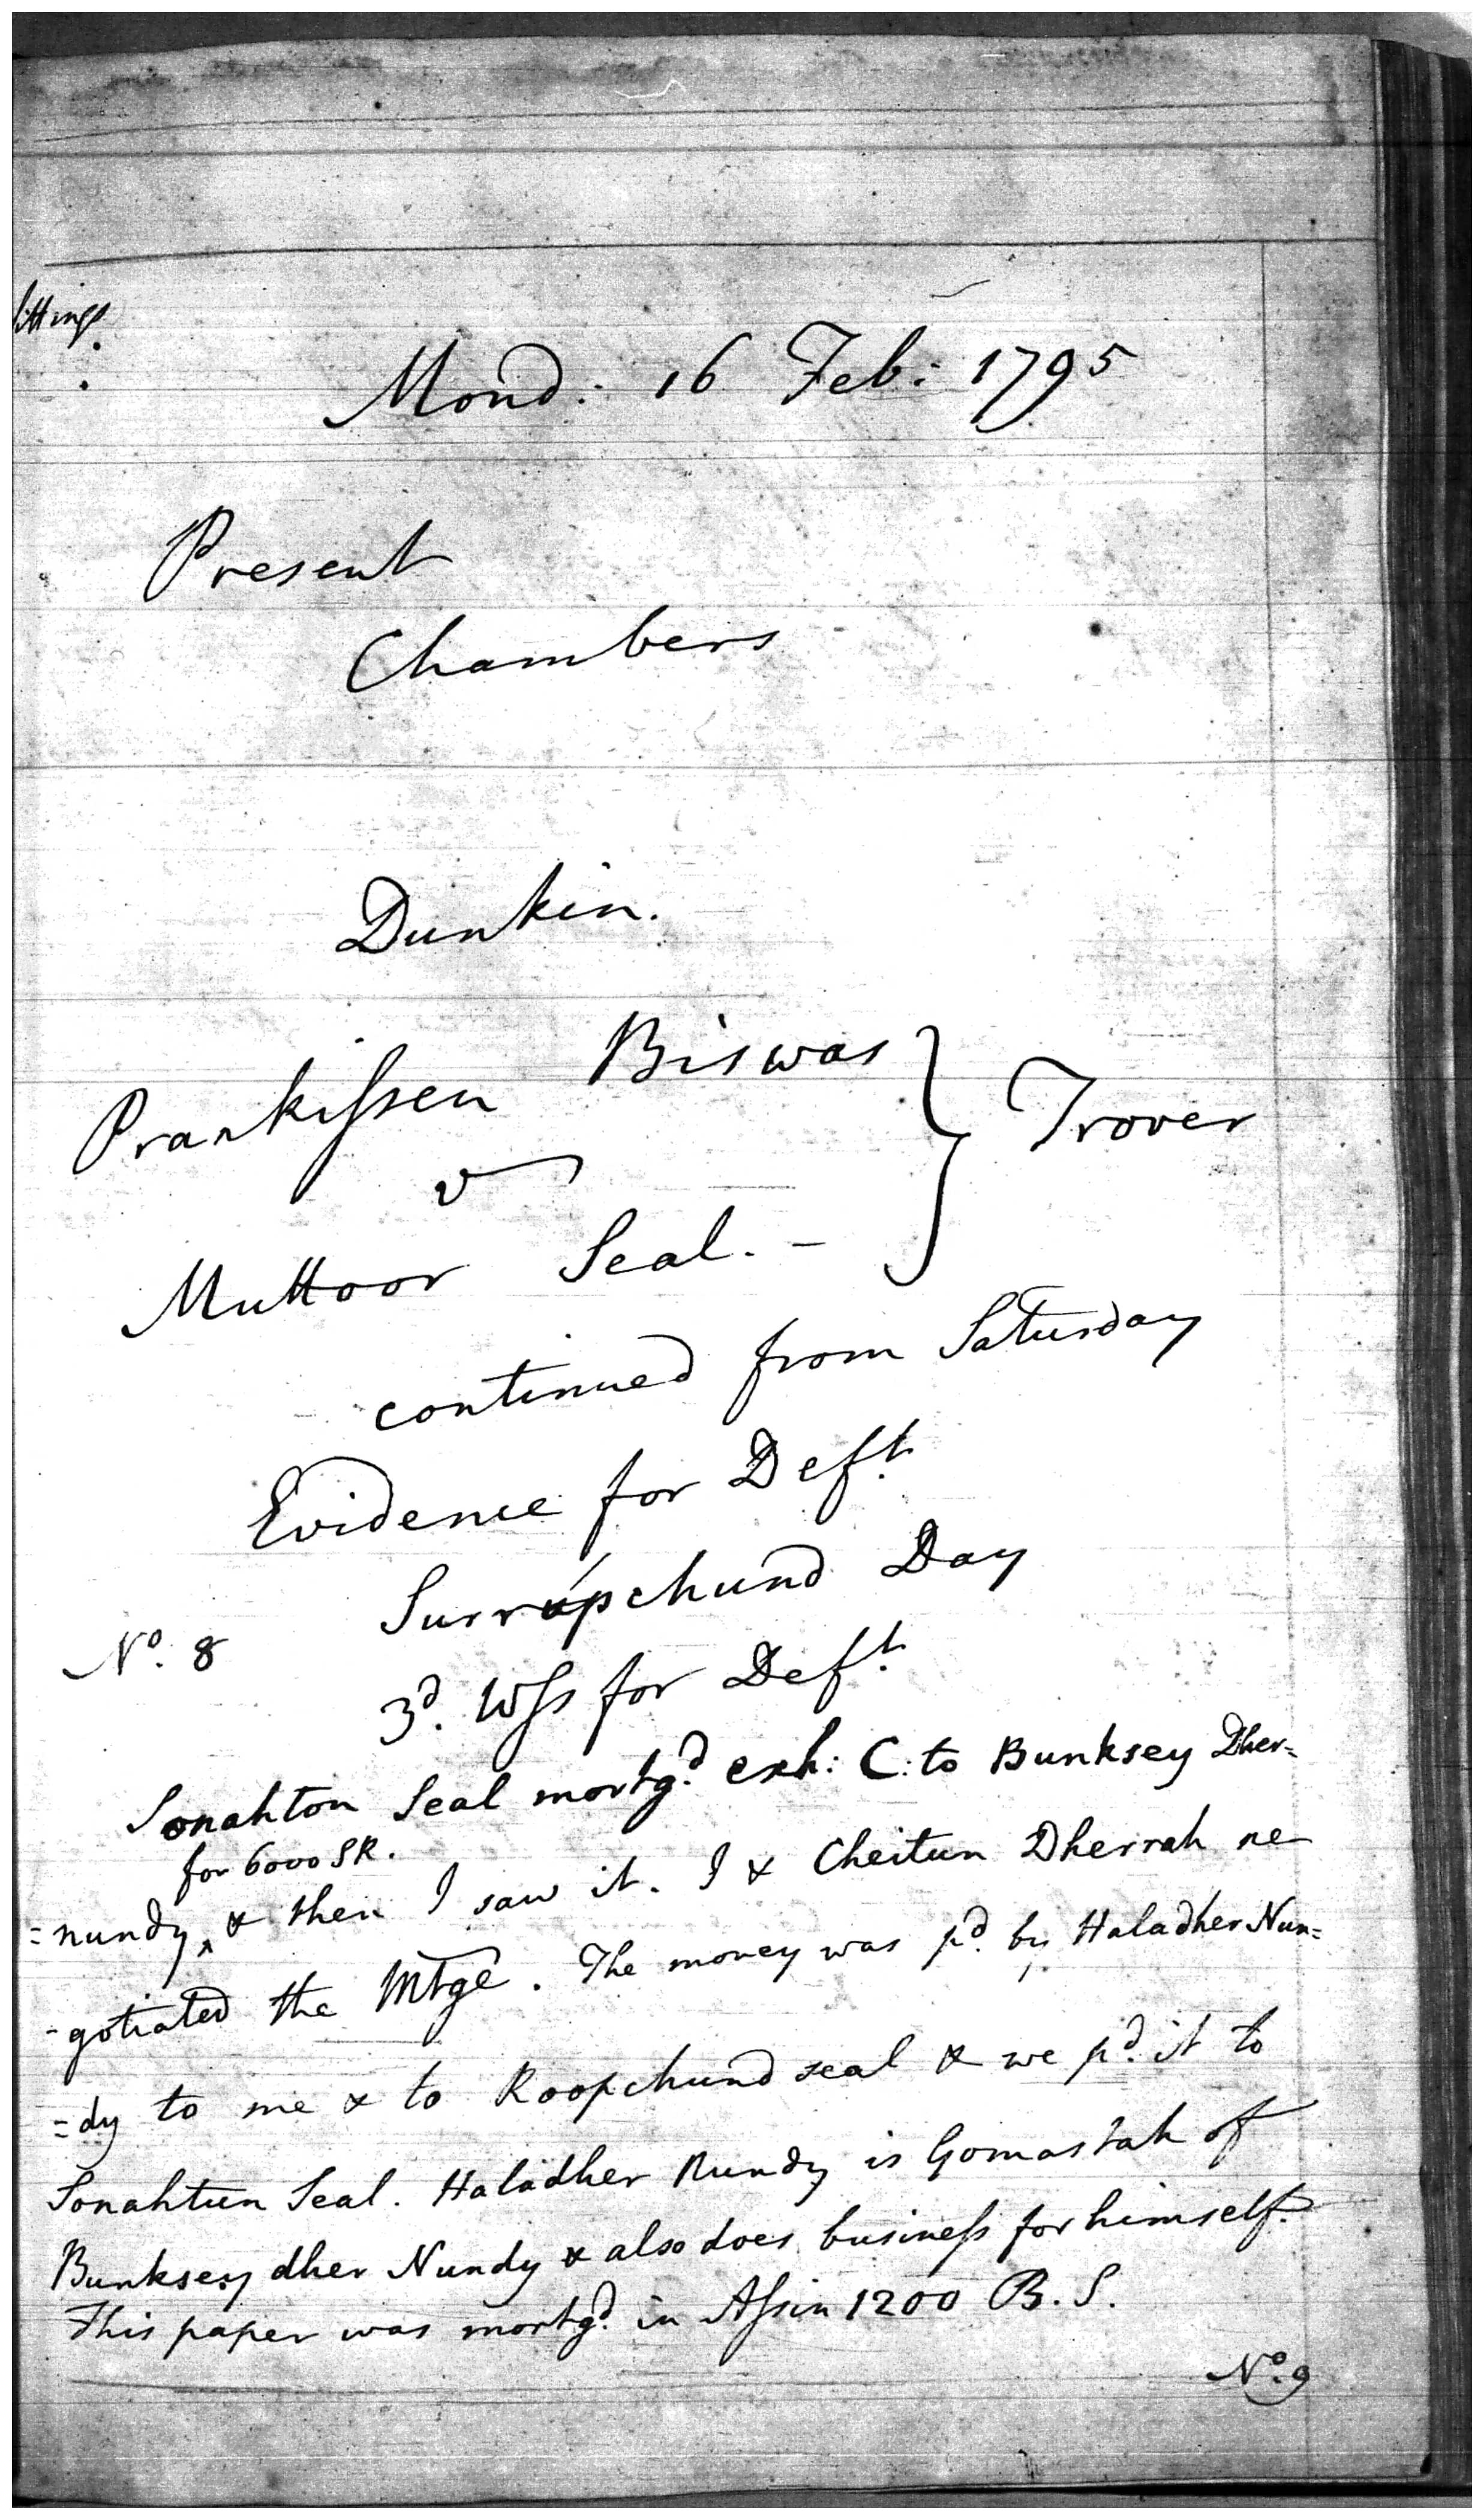 sittings.
Mond: 16 Feb: 1795
Present
Chambers
Dunkin.
Prankissen Biswas
v
Muttoor Seal. -
Trover
continued from Saturday
Evidence for Deft.
Surrupchund Day
No. 8
3d. Wss for Deft.
Sonahton Seal mortgd. exh: C: to Bunksey Dher=
for 6000 SR.
=nundy ‸ & then I saw it. I & Cheitun Dherrah ne
-gotiated the Mtge. The money was pd. by Haladher Nun=
=dy to me & to Roopchund seal & we pd. it to
Sonahtun Seal. Haladher Nundy is Gomastah of
Bunksey dher Nundy & also does business for himself.
This paper was mortgd. in Assin 1200 B.S.
No. 9